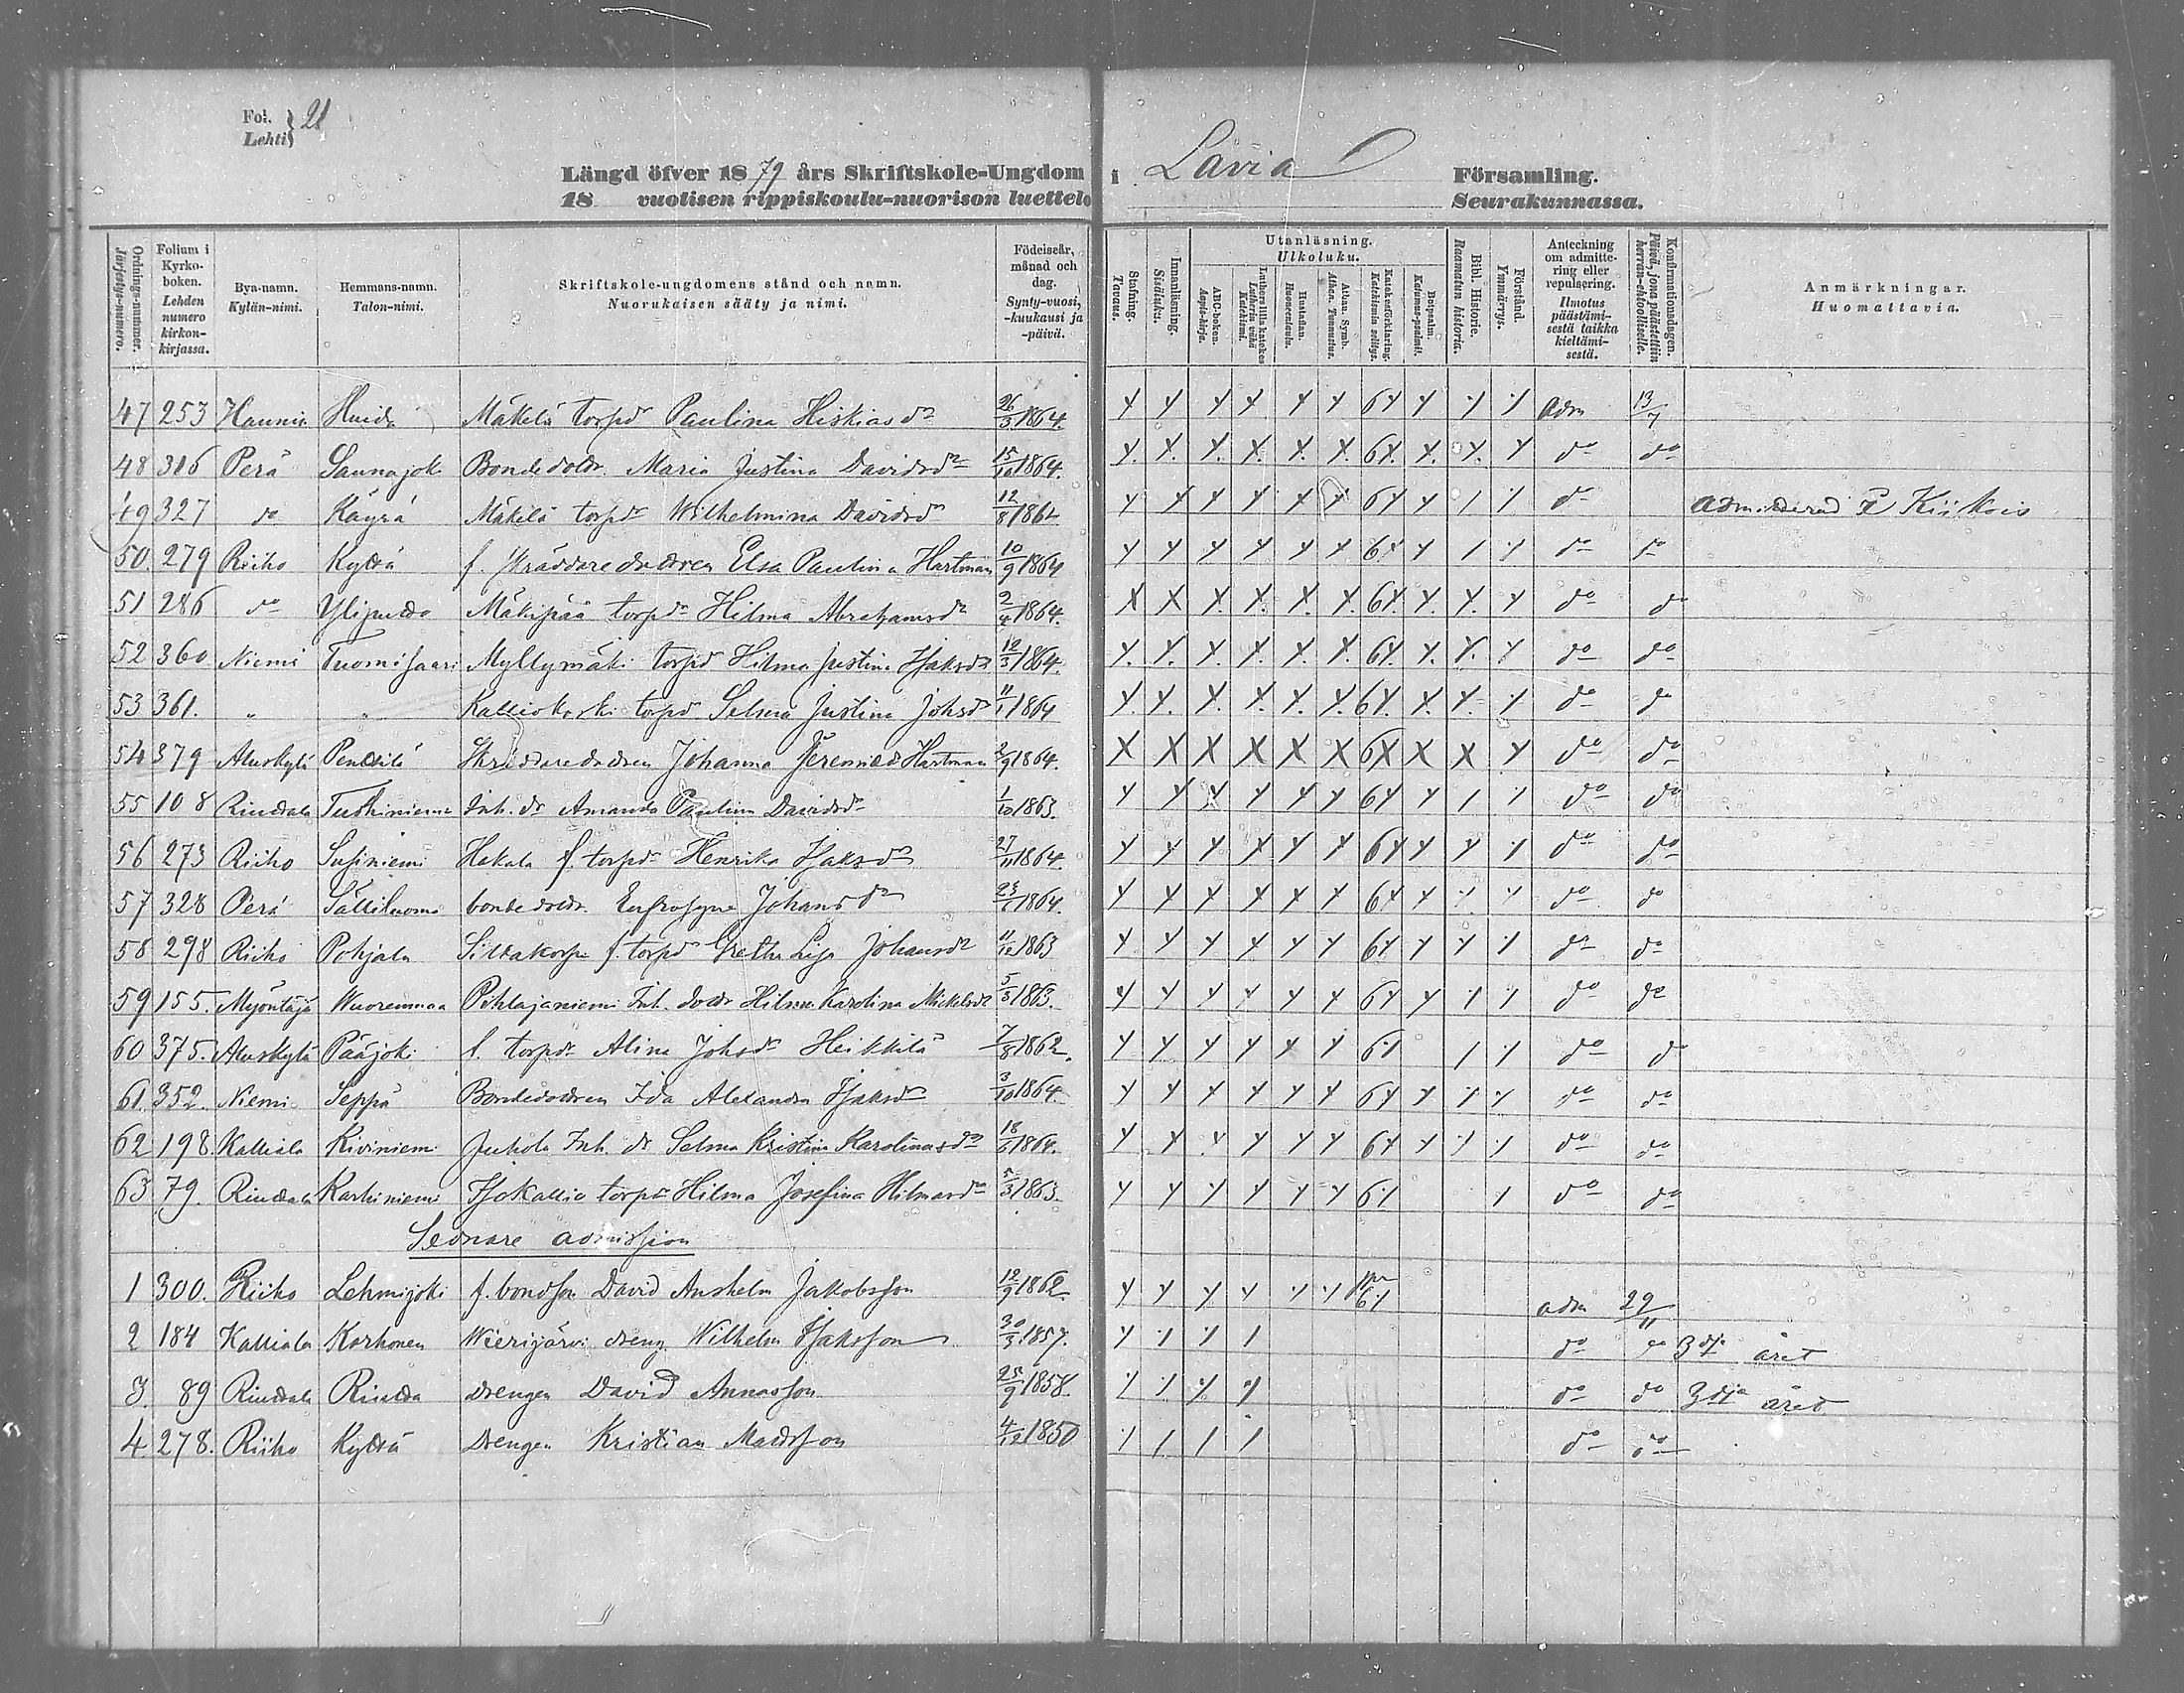 Fol. Lehti } 21
Längd öfver 1879 års Skriftskole-Ungdom i Lavia Församling.
18 vuotisen rippiskoulu-nuorison luettelo Seurakunnassa.
Ordnings-nummer. Järjestys-numero.
Folium i Kyrko-boken. Lehden numero kirkon-kirjassa.
Bya-namn. Kylän-nimi.
Hemmans-namn. Talon-nimi.
Skriftskole-ungdomens stånd och namn. Nuorukaisen sääty ja nimi.
Födelseår, månad och dag. Synty-vuosi, -kuukausi ja -päivä.
Stafning. Tavaus.
Innanläsning. Sisäluku.
Utanläsning. Ulkoluku.
ABC-boken. Aapis-kirja.
Luthers lilla katekes Lutherin vähä Katekismi.
Hustaflan. Huoneentaulu.
Athan. Symb. Athan. Tunnustus.
Katekesförklaring. Katekismin selitys.
Botpsalm. Katumus-psalmit.
Bibl. Historie. Raamatun historia.
Förstånd. Ymmärrys.
Anteckning om admittering eller repulsering. Ilmotus päästämisestä taikka kieltämisestä.
Konfirmationsdagen. Päivä, jona päästettiin herran-ehtoolliselle.
Anmärkningar. Huomattavia.
47 253 Haunia Huida Mäkelä torpdr Paulina Hiskiasdr 26/3 1864. Adm 13/7
48 316 Perä Saunajoki Bondedottr. Maria Justina Davidsdr 15/10 1864. do do
49 327 do Käyrä Mäkelä torpdr Wilhelmina Davidsdr 12/8 1862 do admitterad i Kiikois
50 279 Riiho Kyttä f. Skräddaredottren Elsa Paulina Hartman 10/9 1864 do do
51 286 do Ylipunta Mäkipää torpdr Hilma Abrahamsdr 2/4 1864. do do
52 360 Niemi Tuomisaari Myllymäki torpdr Hilma Justina Isaksdr 12/3 1864. do do
53 361. " " Kalliokoski torpdr Selma Justina Johsdr 11/1 1864 do do
54 379 Aluskylä Penttilä Skräddaredottren Johanna Jeremiaed Hartman 2/9 1864. do do
55 108 Riuttala Tuohiniemi Inh. dr Amanda Paulina Davidsdr 1/10 1863. do do
56 273 Riiho Susiniemi Hakala f. torpdr Henrika Isaksdr 27/11 1864. do do
57 328 Perä Sälliluoma bondedottr. Eufrosyne Johansdr 1864. do do
58 298 Riiho Pohjala Siltakorpi f. torpdr Greta Lisa Johansdr 11/12 1863 do do
59 155. Myöntäjä Wuorenmaa Pohlajaniemi Inh. dottr Hilma Karolina Mickelsdr 5/5 1863. do do
60 375. Aluskylä Pääjoki f. torpdr Alina Johsdr Heikkilä 7/8 1862. do do
61. 352. Niemi Seppä Bondedottren Ida Alexandra Isaksdr 3/10 1864. do do
62 198. Kalliala Kiviniemi Juhola Inh. dr Selma Kristina Karolinasdr 18/6 1864. do do
63 79. Riuttala Karhiniemi Isokallio torpdr Hilma Josefina Hilmasdr 5/3 1863. do do
Sednare admission
1 300. Riiho Lehmijoki f. bondson David Anshelm Jakobsson 12/9 1862. adm 29/11
2 184 Kalliala Korhonen Wierijärvi dreng Wilhelm Isaksson 30/3 1857. do do 3dje året
3. 89 Riuttala Riutta drengen David Annasson 25/9 1858. do do 3dje året
4. 278. Riiho Kyttä Drengen Kristian Mattsson 4/12 1850 do do